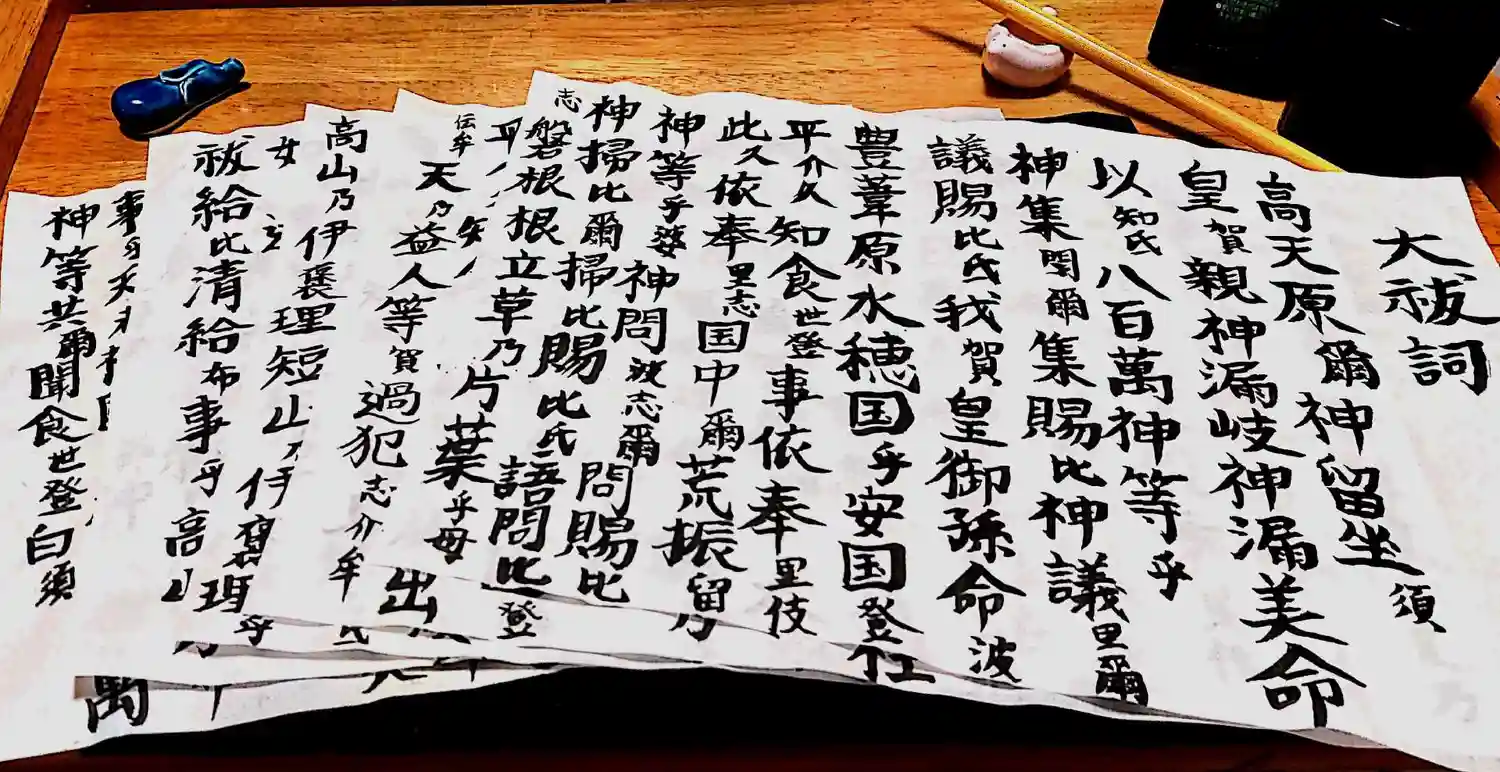 大祓詞
高天原爾神留坐須
皇賀親神漏岐神漏美命
以知氐八百萬神等乎
神集閇爾集賜比神議里爾
議賜比氐我賀皇御孫命波
豊葦原水穂国乎安国登
平介久知食世登事依奉里伎
此久依奉里志国中爾荒振留
神等乎婆神問波志爾問賜比
神掃比爾掃比賜比氐語問比
志磐根根立草乃片葉乎母
天乃益人等賀過犯志介牟
高山乃伊褒理短山乃伊
祓給比清給布事乎高山
神等共爾聞食世登白須